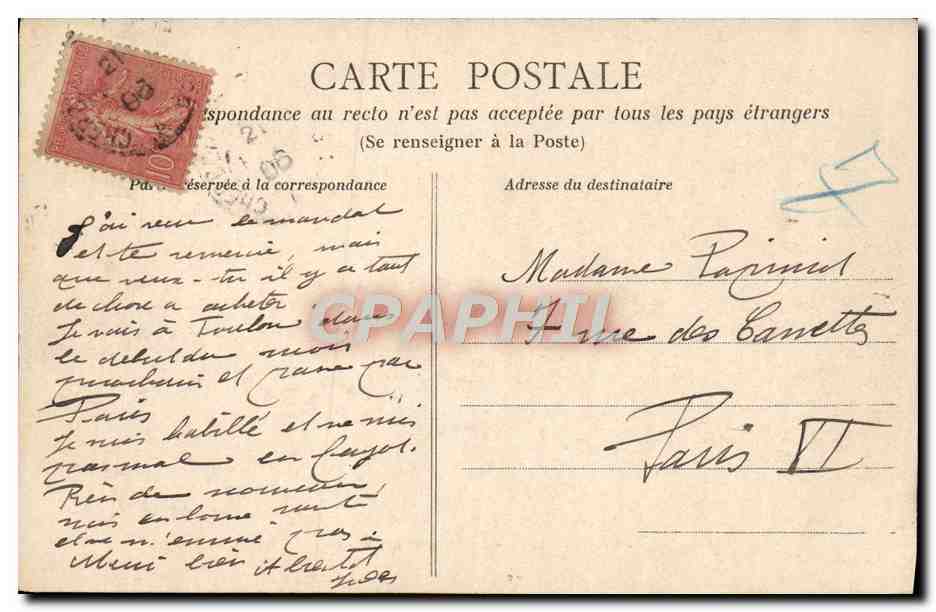 CARTE POSTALE
spondance au recto n'est pas acceptée par tous les pays étrangers
(Se renseigner à la Poste)
Par réservée à la correspondance
Adresse du destinataire
10
21
06
J'ai reçu le mandat
et te remercie, mais
que veux-tu il y a tant
de chose a acheter
Je vais à Toulon dans
le début du mois
prochain et passe par
Paris
Je suis habillé et ne suis
pas mal en
Rien de nouveau
suis en bonne santé
et ne m'ennuie pas à
bien A bientôt
Jules
Madame
7 rue des Cannettes
Paris VI
CPAPHIL